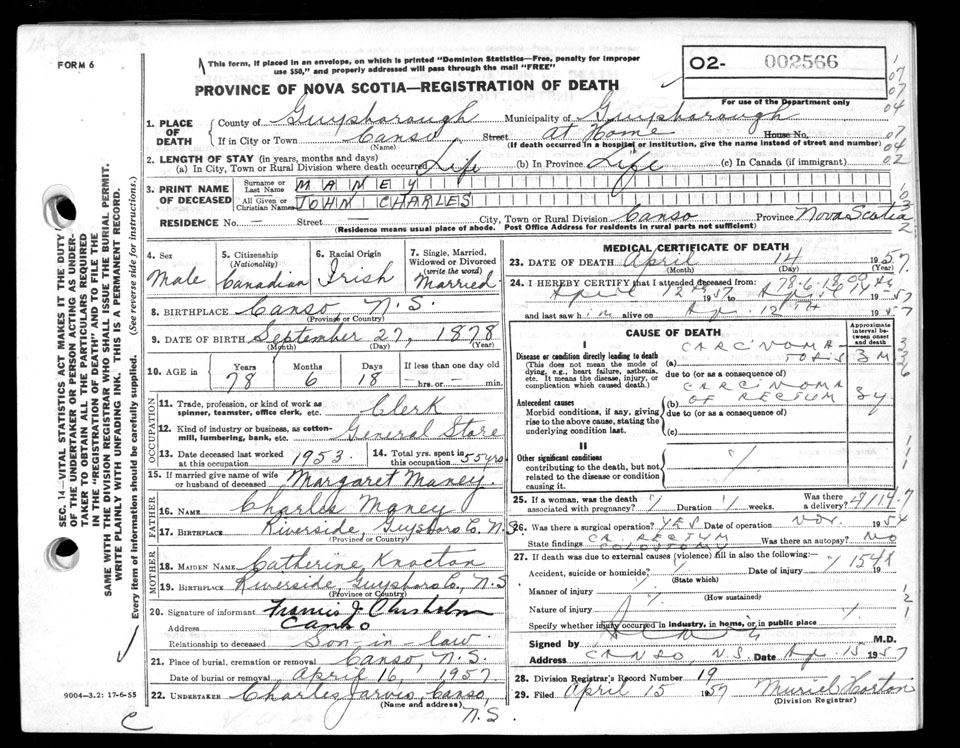 FORM 6
This form, if placed in an envelope, on which is printed "Dominion Statistics—Free, penalty for improper
use $50," and properly addressed will pass through the mail "FREE"
PROVINCE OF NOVA SCOTIA—REGISTRATION OF DEATH
O2- 002566
For use of the Department only
1. PLACE OF DEATH
County of Guysborough Municipality of Guysborough
If in City or Town Canso Street At Home House No.
(Name) (If death occurred in a hospital or institution, give the name instead of street and number)
2. LENGTH OF STAY (in years, months and days)
(a) In City, Town or Rural Division where death occurred Life (b) In Province Life (c) In Canada (if immigrant)
3. PRINT NAME OF DECEASED
Surname or Last Name MANEY
All Given or Christian Names JOHN CHARLES
RESIDENCE No. — Street — City, Town or Rural Division Canso Province Nova Scotia
(Residence means usual place of abode. Post Office Address for residents in rural parts not sufficient)
4. Sex
Male
5. Citizenship (Nationality)
Canadian
6. Racial Origin
Irish
7. Single, Married, Widowed or Divorced (write the word)
Married
8. BIRTHPLACE Canso N.S.
(Province or Country)
9. DATE OF BIRTH September 27, 1878
(Month) (Day) (Year)
10. AGE in Years Months Days If less than one day old
78 6 18 — hrs. or — min.
OCCUPATION
11. Trade, profession, or kind of work as spinner, teamster, office clerk, etc. Clerk
12. Kind of industry or business, as cotton-mill, lumbering, bank, etc. General Store
13. Date deceased last worked at this occupation 1953.
14. Total yrs. spent in this occupation 55 yrs
15. If married give name of wife or husband of deceased Margaret Maney.
FATHER
16. NAME Charles Maney
17. BIRTHPLACE Riverside, Guysboro Co. N.S.
(Province or Country)
MOTHER
18. MAIDEN NAME Catherine Knocton
19. BIRTHPLACE Riverside, Guysboro Co., N.S
(Province or Country)
20. Signature of informant Francis J Chisholm
Address Canso
Relationship to deceased Son-in-law
21. Place of burial, cremation or removal Canso, N.S.
Date of burial or removal April 16, 1957.
22. UNDERTAKER Charles Jarvis, Canso,
(Name and address) N.S.
MEDICAL CERTIFICATE OF DEATH
23. DATE OF DEATH April 14 1957.
(Month) (Day) (Year)
24. I HEREBY CERTIFY that I attended deceased from: 78-6-18-00
April 12 1957 to April 14th 1957
and last saw him alive on Ap. 12th 1957
CAUSE OF DEATH
Approximate interval between onset and death
I
Disease or condition directly leading to death
(This does not mean the mode of dying, e.g., heart failure, asthenia, etc. It means the disease, injury, or complication which caused death.)
(a) CARCINOMA 3 M
due to (or as a consequence of)
Antecedent causes
Morbid conditions, if any, giving rise to the above cause, stating the underlying condition last.
(b) CARCINOMA OF RECTUM 3 y
due to (or as a consequence of)
(c)
II
Other significant conditions
contributing to the death, but not related to the disease or condition causing it.
25. If a woman, was the death associated with pregnancy? Duration weeks. Was there a delivery?
26. Was there a surgical operation? YES Date of operation Nov. 1954
State findings CA RECTUM COLOSTOMY Was there an autopsy? NO
27. If death was due to external causes (violence) fill in also the following:—
Accident, suicide or homicide? Date of injury 19
(State which)
Manner of injury
(How sustained)
Nature of injury
Specify whether injury occurred in industry, in home, or in public place
Signed by M.D.
Address CANSO, N.S. Date Ap. 15 1957
28. Division Registrar's Record Number 19
29. Filed April 15 1957 Muriel Horton
(Division Registrar)
SEC. 14—VITAL STATISTICS ACT MAKES IT THE DUTY
OF THE UNDERTAKER OR PERSON ACTING AS UNDER-
TAKER TO OBTAIN ALL THE PARTICULARS REQUIRED
IN THE "REGISTRATION OF DEATH" AND TO FILE THE
SAME WITH THE DIVISION REGISTRAR WHO SHALL ISSUE THE BURIAL PERMIT.
WRITE PLAINLY WITH UNFADING INK. THIS IS A PERMANENT RECORD.
Every item of information should be carefully supplied. (See reverse side for instructions.)
9004—3.2: 17-6-55